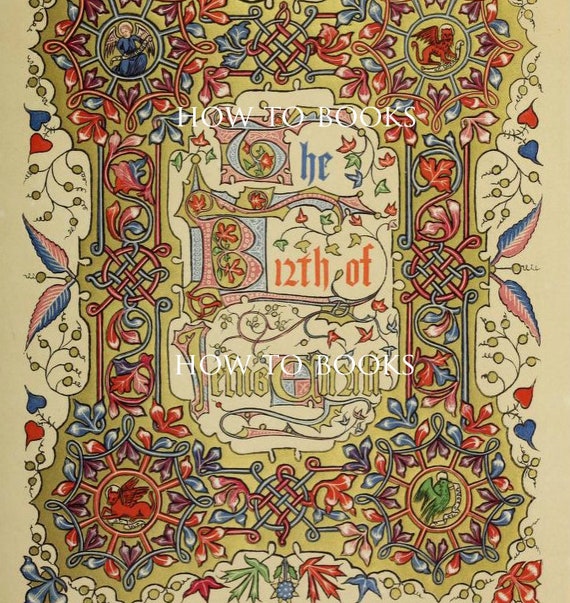 HOW TO BOOKS
The
Birth of
HOW TO BOOKS
Jesus